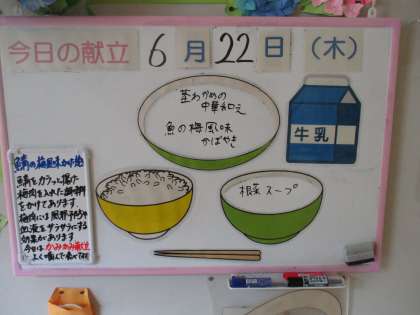 今日の献立 6月22日(木)
茎わかめの
中華和え
魚の梅風味
かばやき
牛乳
根菜スープ
鯖の梅風味かば焼
鯖をカラッと揚げ
梅肉を入れた調味料
をかけてあります。
梅肉には風邪予防や
血液をサラサラにする
効果があります。
今日はかみかみ献立
よく噛んで